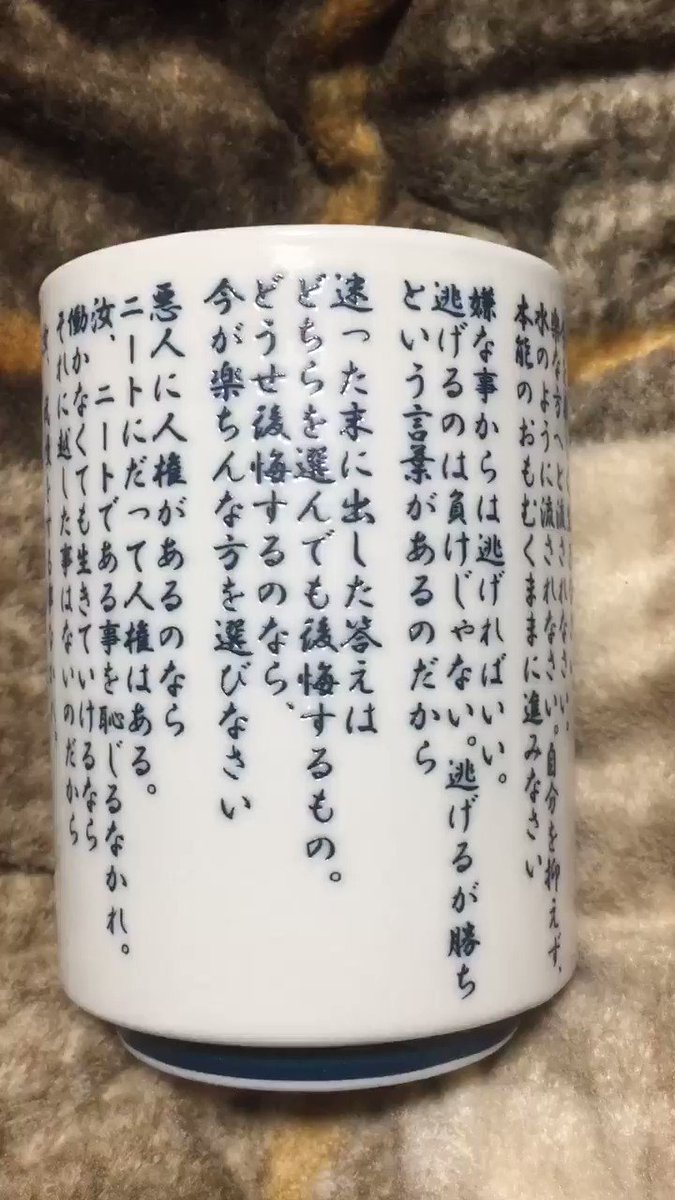 楽な方へと流されなさい。
水のように流されなさい。自分を抑えず、
本能のおもむくままに進みなさい
嫌な事からは逃げればいい。
逃げるのは負けじゃない。逃げるが勝ち
という言葉があるのだから
迷った末に出した答えは
どちらを選んでも後悔するもの。
どうせ後悔するのなら、
今が楽ちんな方を選びなさい
悪人に人権があるのなら
ニートにだって人権はある。
汝、ニートである事を恥じるなかれ。
働かなくても生きていけるなら
それに越した事はないのだから